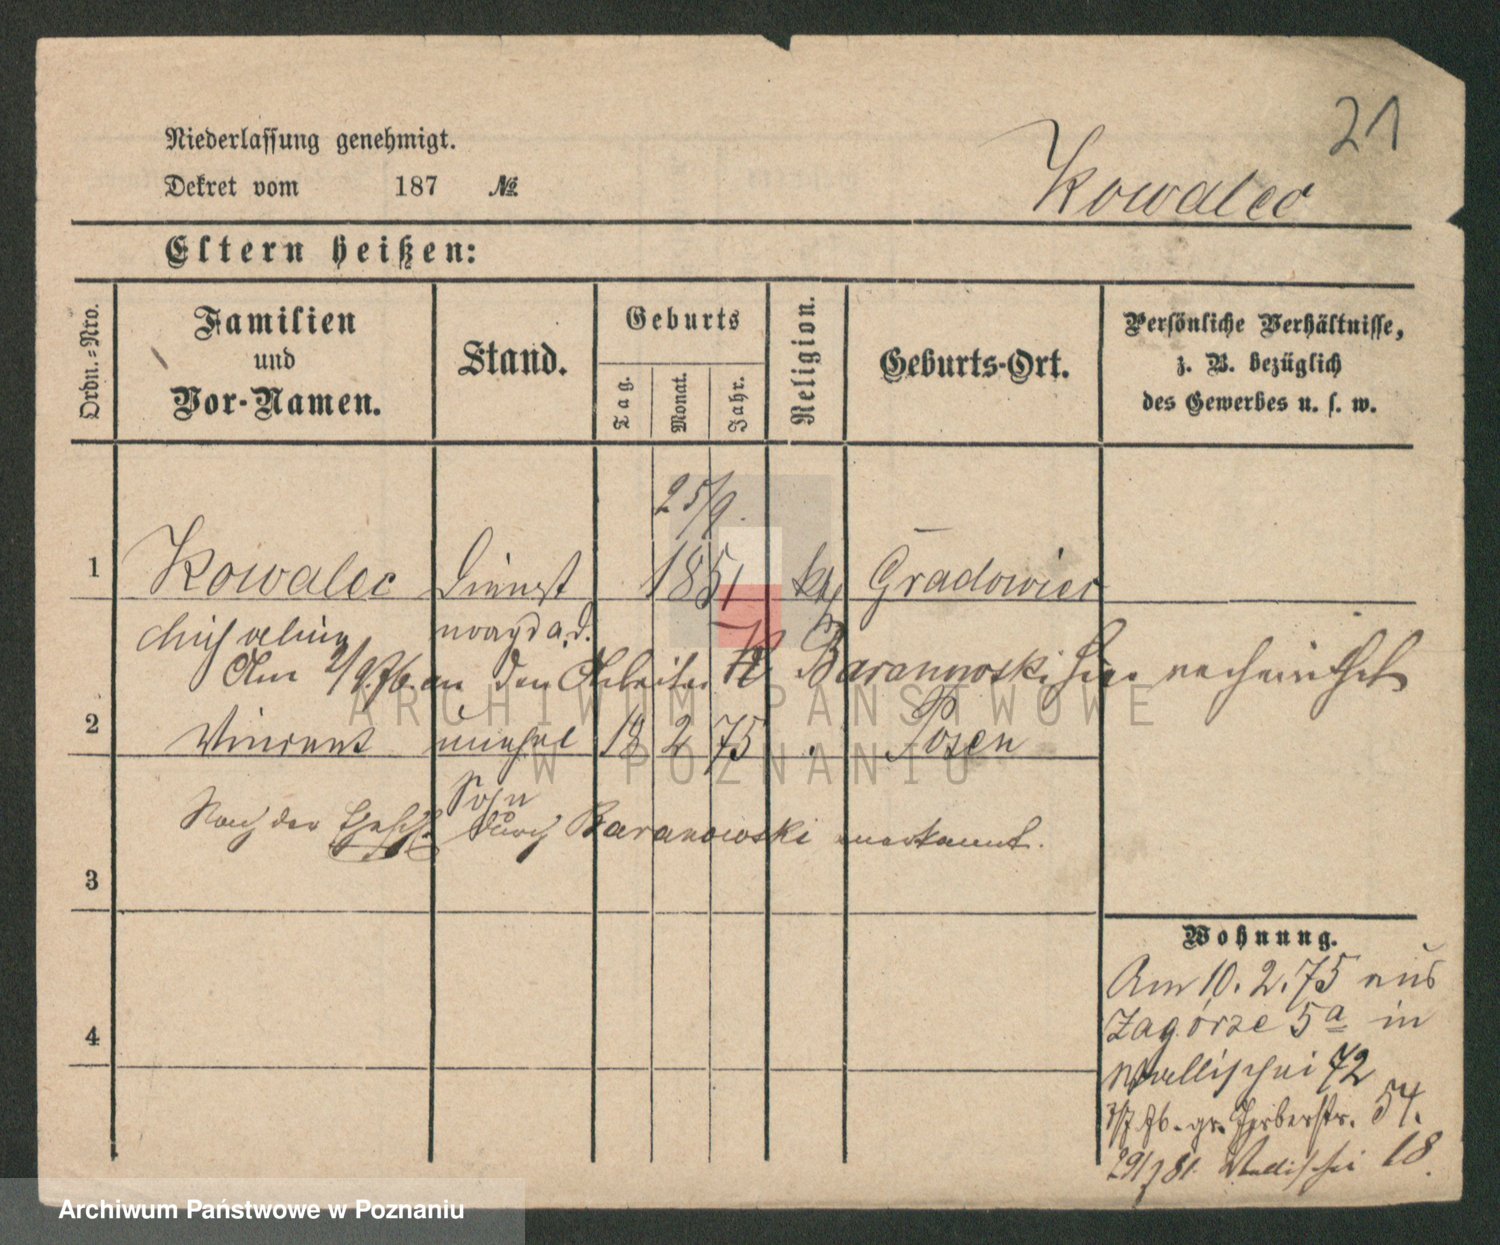 21
Niederlassung genehmigt.
Dekret vom 187 №
Kowalec
Eltern heißen:
Ordn.=Nro.
Familien
und
Vor-Namen.
Stand.
Geburts
Tag.
Monat.
Jahr.
Religion.
Geburts-Ort.
Persönliche Verhältnisse,
z. B. bezüglich
des Gewerbes u. s. w.
25/9.
1 Kowalec Dienst 1851 kth Gradowiec
Am 2/9.76. an den Arbeiter Baranowski hier verheirathet
2 Vincent unehel 18 2 75 . Posen
Sohn
Nach der durch Baranowski anerkannt.
3
4
Wohnung.
Am 10. 2. 75 aus
Zagórze 5a in
Wallischei 72
gr. Gerberstr. 54.
Wallischei 18.
ARCHIWUM PAŃSTWOWE
W POZNANIU
Archiwum Państwowe w Poznaniu